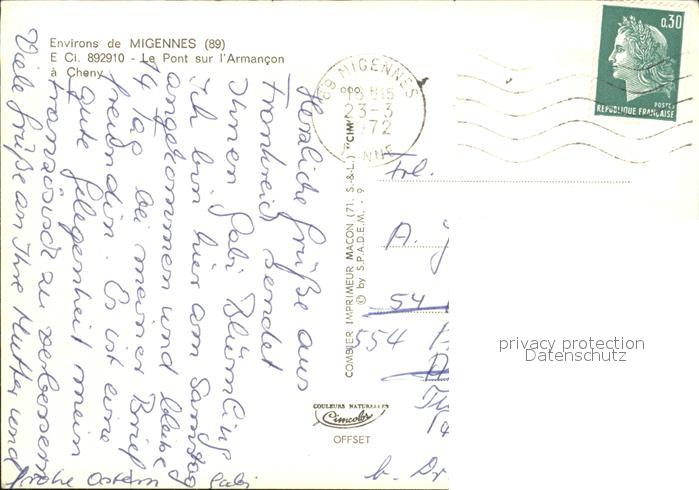 Environs de MIGENNES (89)
E Ci. 892910 - Le Pont sur l'Armançon
à Cheny
89 MIGENNES
23-3
1972
YONNE
0,30
POSTES
REPUBLIQUE FRANÇAISE
Herzliche Grüße aus
Frankreich sendet
Ihnen Gabi
Ich bin hier am Samstag
angekommen und bleibe
14 Tag bei meiner Brief
freundin. Es ist eine
gute Gelegenheit mein
Französisch zu verbessern
Viele Grüße an Ihre Mutter und
frohe Ostern Gabi
COMBIER IMPRIMEUR MACON (71. S.-&-L.) "CIM"
© by S.P.A.D.E.M. - 9
COULEURS NATURELLES
Cimcolor
OFFSET
Frl.
A.
54
554
b. Dr
privacy protection
Datenschutz